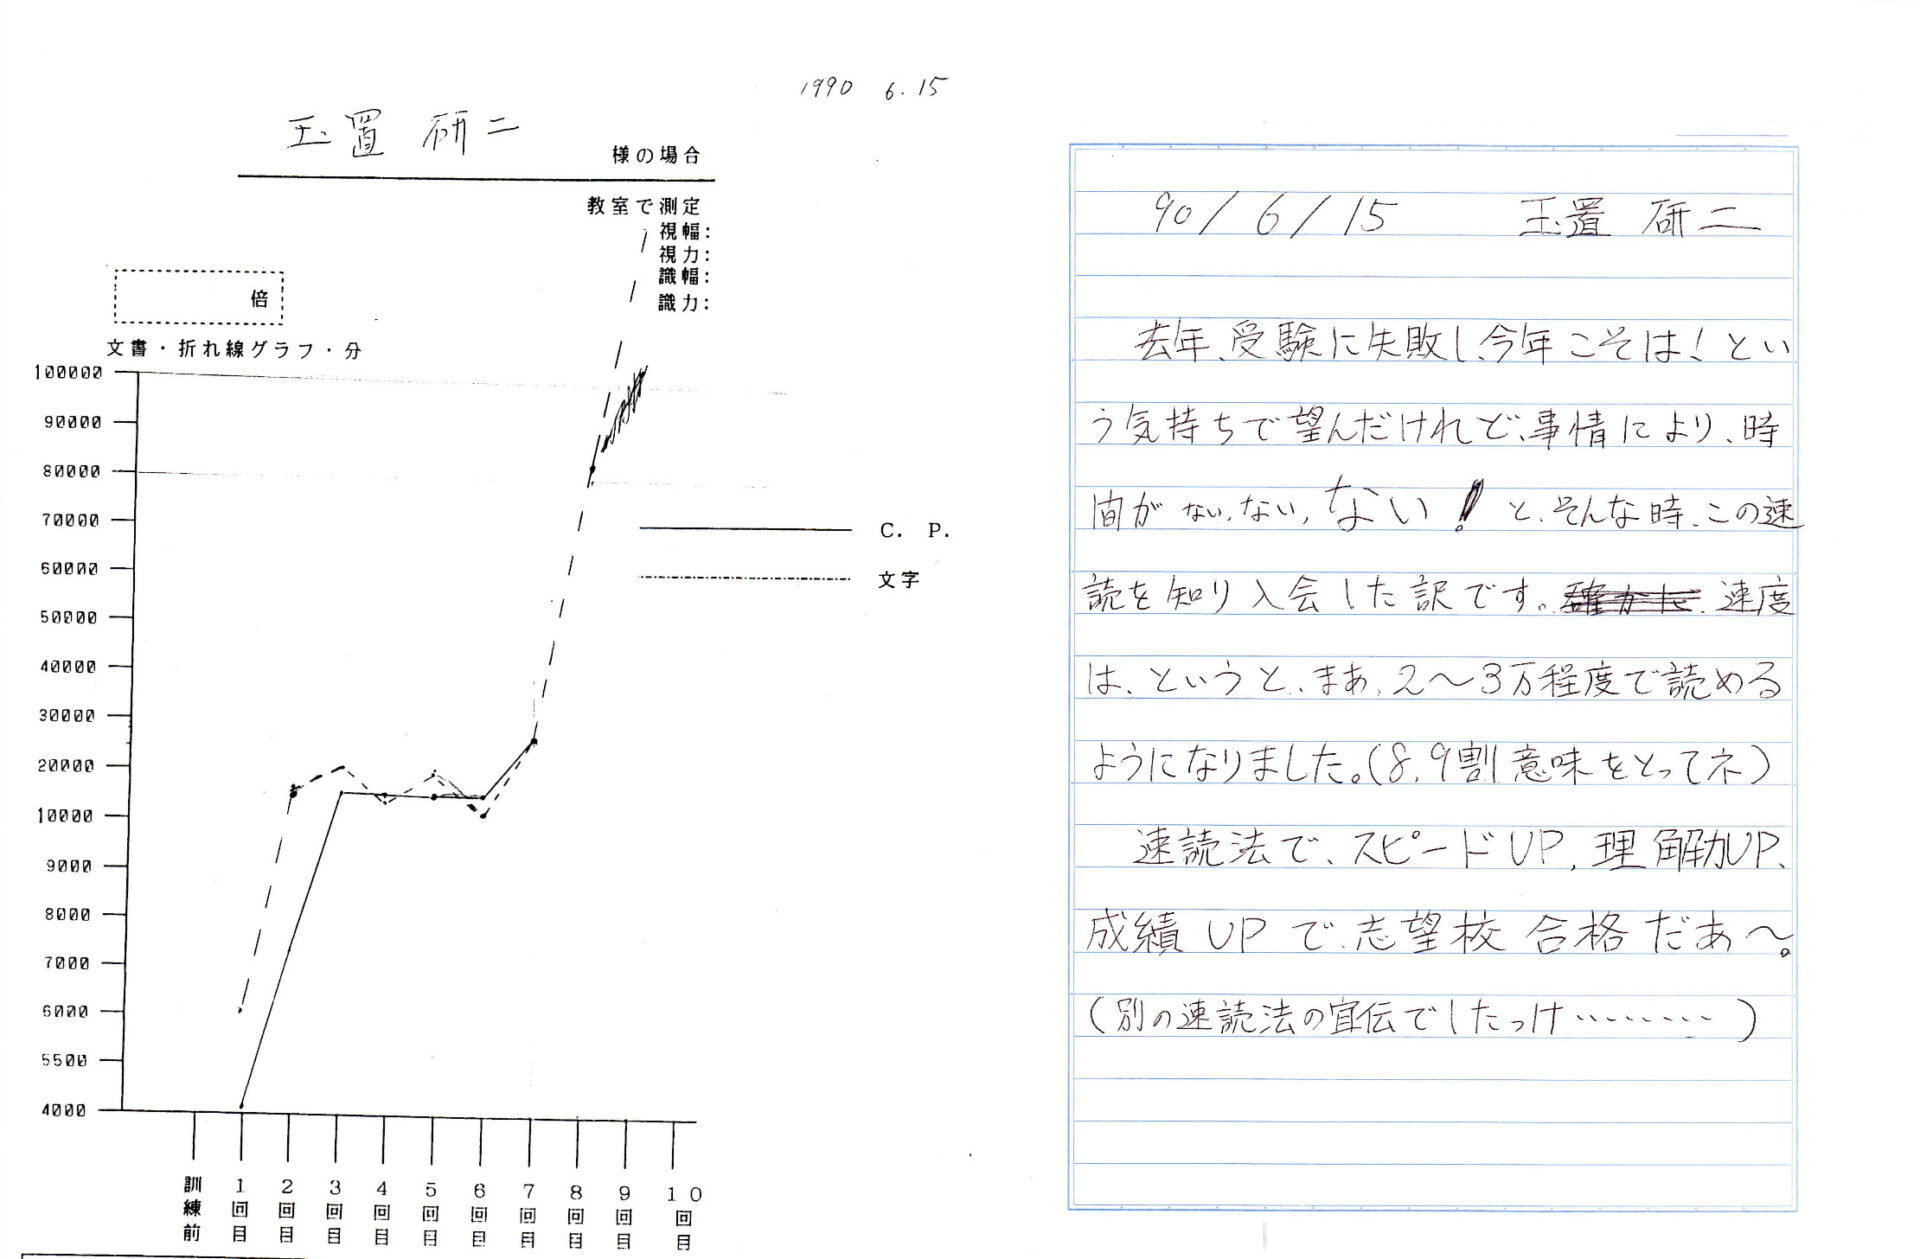 1990 6.15
玉置 研二
様の場合
教室で測定
視幅:
視力:
識幅:
識力:
倍
文書・折れ線グラフ・分
100000
90000
80000
70000
60000
50000
40000
30000
20000
10000
9000
8000
7000
6000
5500
4000
C. P.
文字
訓練前
1回目
2回目
3回目
4回目
5回目
6回目
7回目
8回目
9回目
10回目
90/6/15 玉置 研二
去年、受験に失敗し、今年こそは!とい
う気持ちで望んだけれど、事情により、時
間がない、ない、ない!と、そんな時、この速
読を知り入会した訳です。確かに、速度
は、というと、まあ、2〜3万程度で読める
ようになりました。(8,9割意味をとってネ)
速読法で、スピードUP,理解力UP、
成績UPで、志望校合格だあ〜。
(別の速読法の宣伝でしたっけ………)